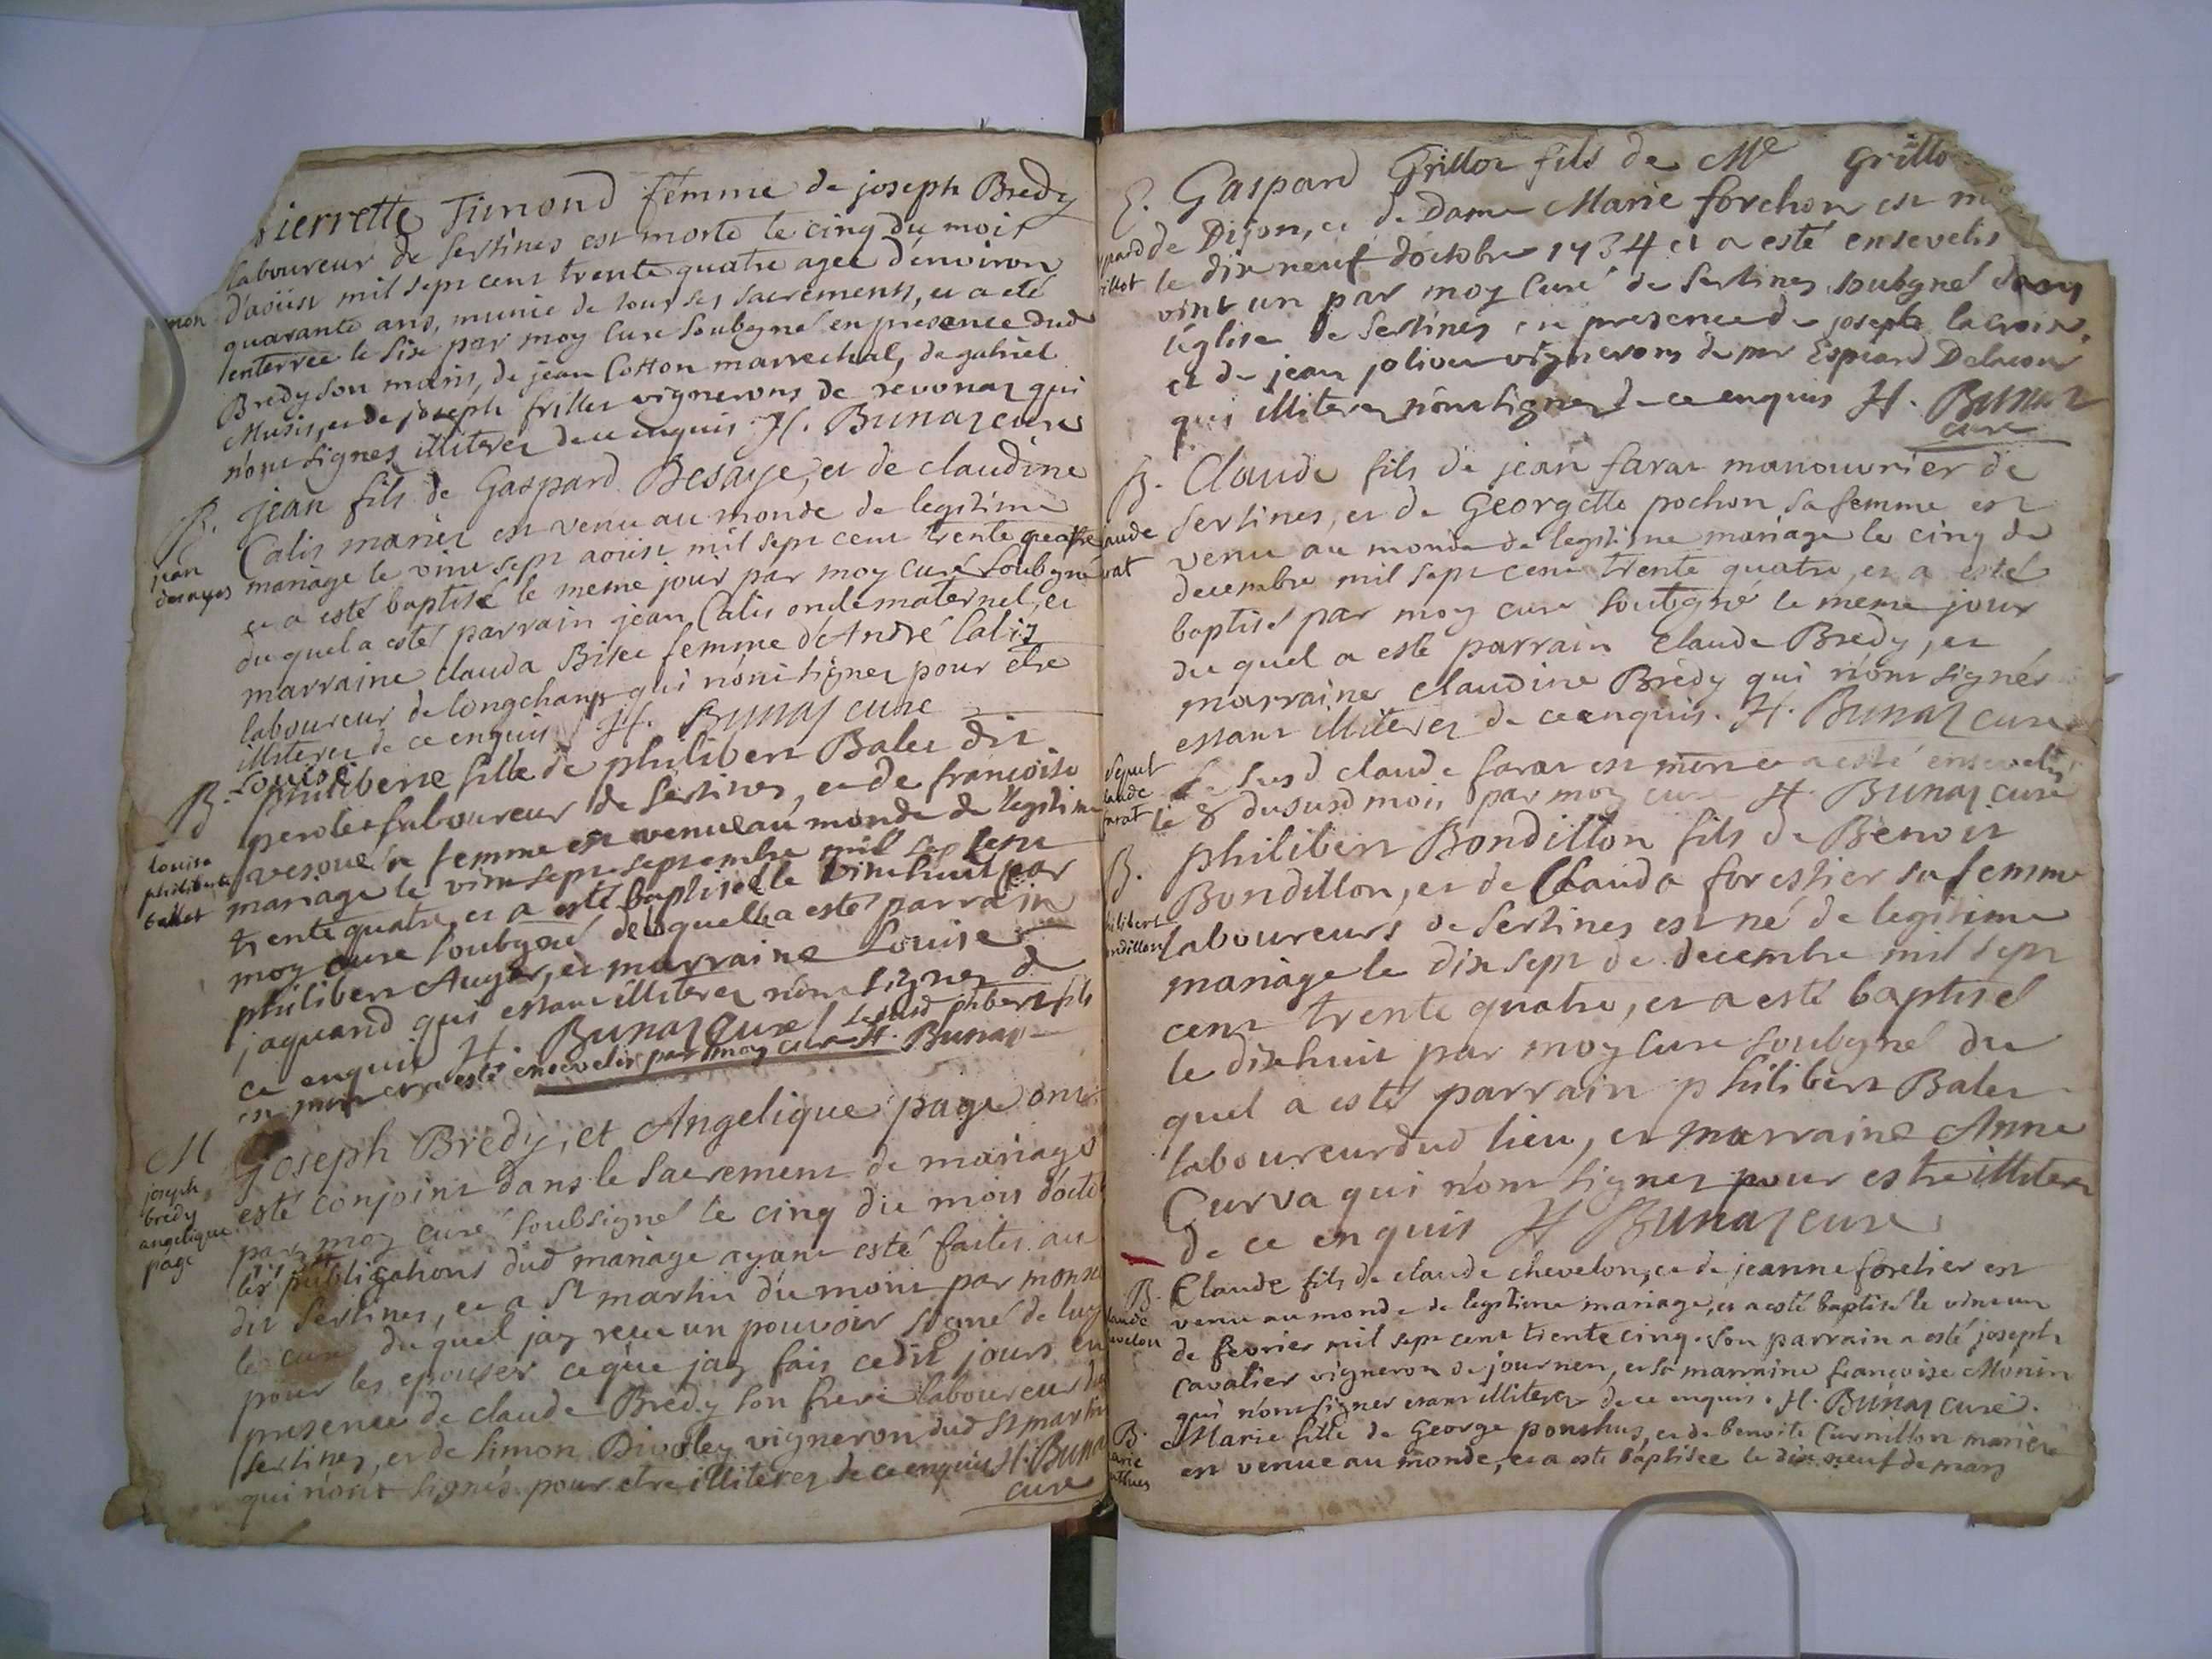 pierrette Timond femme de joseph Bredy
laboureur de Sertines est morte le cinq du mois
d'aoüst mil sept cent trente quatre agee d'environ
mon
quarante ans, munie de tous ses sacrements, et a eté
enterrée le six par moy curé soubsgné en presence dud
Bredy son mari, de jean Cotton marrechal, de gabriel
Musis, et de joseph frillet vignerons de revonas qui
n'ont signes illiteres de ce enquis H. Bunaz curé
B. jean fils de Gaspard Besaye, et de claudine
Calis mariez est venu au monde de legitime
jean
mariage le vint sept aoüst mil sept cent trente quatre
desayes
et a esté baptisé le meme jour par moy curé soubsgné
du quel a esté parrain jean Calis oncle maternel, et
marraine clauda Bisec femme d'André Calis
laboureur de longchamp qui n'ont signez pour etre
illiterez de ce enquis H. Bunaz curé
Louise
B. philiberte fille de philibert Balet dit
perolet laboureur de Sertines, et de françoise
louise
philiberte
ballet
vesoue sa femme est venue au monde de legitime
mariage le vint sept septembre mil sept cent
trente quatre, et a esté baptisé le vinthuit par
moy curé soubgné de laquelle a esté parrain
philibert Auger, et marraine Louise
jaquand qui estant illiterez n'ont signez de
ce enquis H. Bunaz Curé / Lesusd phibert fils
est mort et a esté ensevelis par moy curé H. Bunaz
M joseph Bredy, et Angelique page ont
joseph
bredy
angelique
page
esté conjoint dans le sacrement de mariage
par moy curé soubsigné le cinq du mois d'octo
les publications dud mariage ayant esté faites au
dit Sertines, et a St martin du mont par monsr
le curé du quel jay receu un pouvoir signé de luy
pour les epouser ce que jay fait cedit jours en
presence de claude Bredy son frere laboureur du
Sertines, et de simon Divoley vigneron dud St martin
qui n'ont signés pour etre illiterez de ce enquis H. Buna
curé
E. Gaspard Grillot fils de Mre Grillo
de Dijon, et de Dame Marie forchon est m
pard
rillot
le dix neuf d'octobre 1734 et a esté ensevelis
vint un par moy curé de Sertines soubgné dans
l'église de Sertines en presence de joseph lacroix,
et de jean jolivet vignerons de mr Espiard Delacour
qui illiterez n'ont signez de ce enquis H. Bunaz
curé
B. Claude fils de jean farat manouvrier de
Sertines, et de Georgette pochon sa femme est
aude
rat
venu au monde de legitime mariage le cinq de
decembre mil sept cent trente quatre, et a esté
baptisé par moy curé soubsgné le meme jour
du quel a esté parrain Claude Bredy, et
marraine claudine Bredy qui n'ont signés
estant illiterez de ce enquis. H. Bunaz curé
Le susd claude farat est mort et a esté ensevelis
claude
farat
le 8 du susd mois par moy curé H. Bunaz curé
B. philibert Bondillon fils de Benoit
Bondillon, et de Clauda forestier sa femme
hilibert
ondillon
laboureurs de Sertines est né de legitime
mariage le dix sept de decembre mil sept
cent trente quatre, et a esté baptisé
le dixhuit par moy curé soubgné du
quel a esté parrain philibert Balet
laboureur dud lieu, et marraine Anne
Curva qui n'ont signez pour estre illiterez
de ce enquis H Bunaz curé
B. Claude fils de claude chevelon, et de jeanne foretier est
laude
evelon
venu au monde de legitime mariage, et a esté baptisé le vint un
de fevrier mil sept cent trente cinq. son parrain a esté joseph
cavalier vigneron de journen, et sa marraine françoise Monin
qui n'ont signez etant illiterez de ce enquis. H. Bunaz curé.
B. Marie fille de George ponthus, et de benoite Curnillon mariez
arie
nthus
est venue au monde, et a esté baptisée le dix neuf de mars